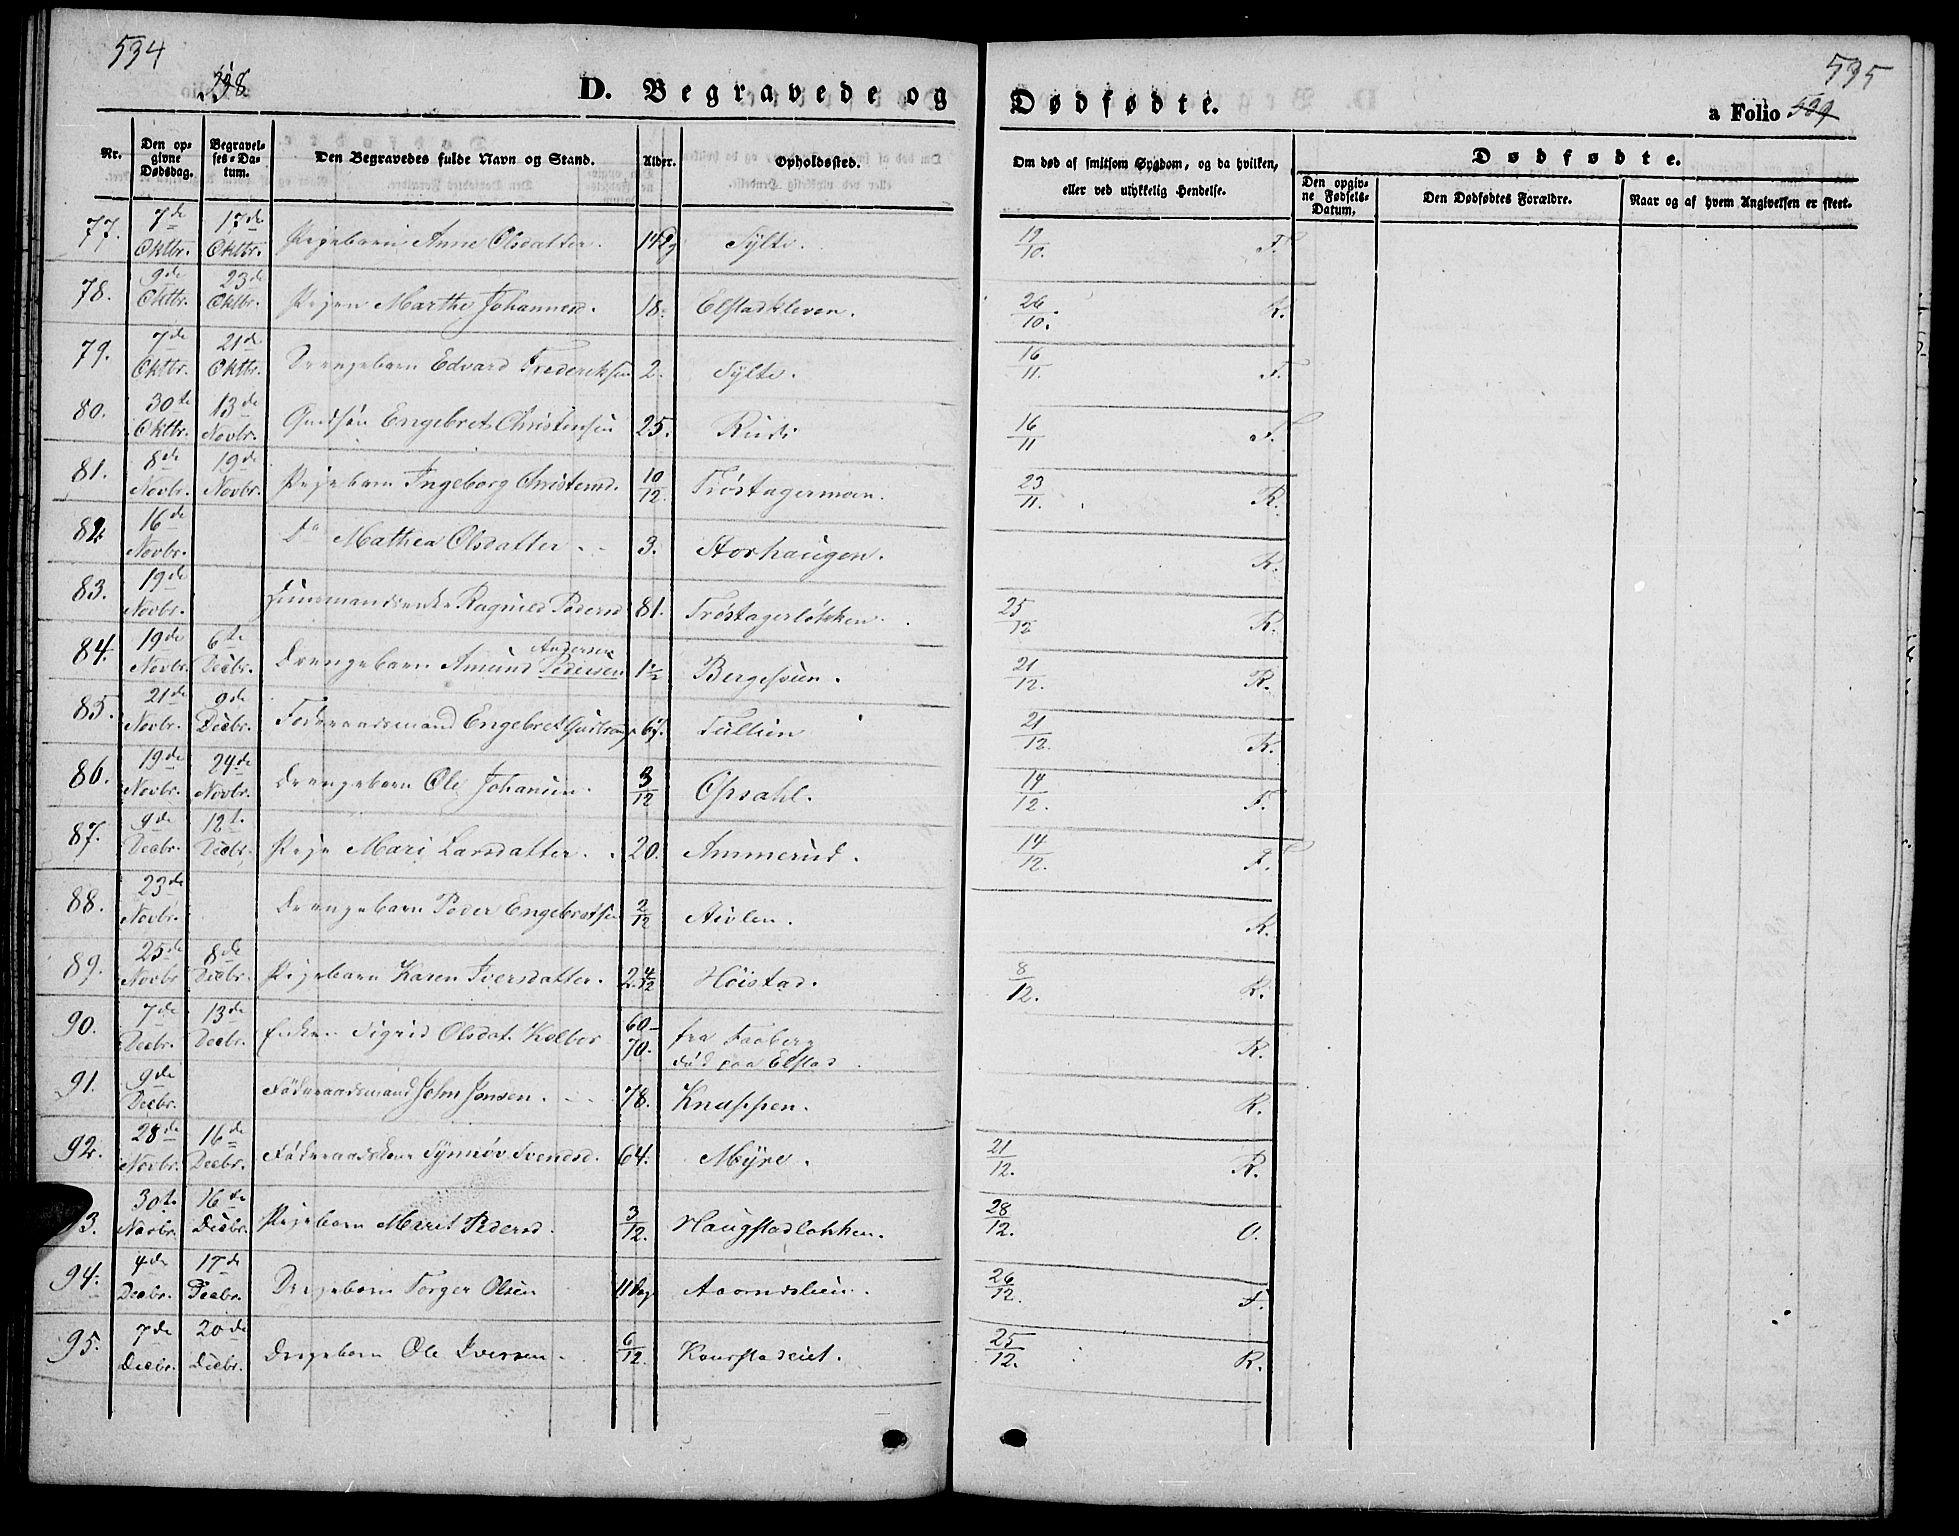 534
538
D. Begravede og
Nr.
Den opgivne Dødsdag.
Begravelses-Datum.
Den Begravedes fulde Navn og Stand.
Alder.
Opholdssted.
77. 7de Oktbr. 17de Oktbr. Pigebarn Anne Olsdatter. 14 Dg Sylte.
78. 9de Oktbr. 23de Oktbr. Pigen Marthe Johannesd. 18. Elstadkleven.
79. 7de Oktbr. 21de Oktbr. Drengebarn Edvard Frederiksen 2. Sylte.
80. 30te Oktbr. 13de Novbr. Engebret Christensen 25. Rude
81. 8de Novbr. 19de Novbr. Pigebarn Ingeborg Christensd. 10/12. Trøstagermoen.
82. 16de Novbr. Do Mathea Olsdatter 3. Storhaugen.
83. 19de Novbr. Ragnild Pedersd 81. Trøstagerløkken.
Andersen
84. 19de Novbr. 6te Decbr. Drengebarn Amund Pedersen 1½ Bergesveen.
85. 21de Novbr. 9de Decbr. Føderaadsmand Engebret 67. Tullien
86. 19de Novbr. 24de Novbr. Drengebarn Ole Johansen. 3/12 Opsahl.
87. 9de Decbr. 12te Decbr. Pige Mari Larsdatter. 20. Ammerud.
88. 23de Novbr. Drengebarn Peder Engebretsen 2/12
89. 25de Novbr. 8de Decbr. Pigebarn Karen Iversdatter. 2 4/12 Høistad.
90. 7de Decbr. 13de Decbr. Enken Sigrid Olsdat. Kolbor 60-70. fra Faaberg
Född paa Elstad
91. 9de Decbr. Føderaadsmand John Jonsen. 78. Knappen.
92. 28de Novbr. 16de Decbr. Føderaadskone Synnøv Svendsd. 64. Myre.
3. 30te Novbr. 16de Decbr. Pigebarn Marit Pedersd. 3/12. Haugstadløkken.
94. 4de Decbr. 17de Decbr. Drgebarn Torger Olsen 11 Dag
95. 7de Decbr. 20de Decbr. Drgebarn Ole Iversen. 6/12. Kongstadeiet.
535
Dødfødte.
a Folio 539
Om død af smitsom Sygdom, og da hvilken,
eller ved ulykkelig Hendelse.
Dødfødte.
Den opgivne Fødsels-Datum.
Den Dødfødtes Forældre.
Naar og af hvem Angivelsen er skeet.
19/10. F.
26/10. R.
16/11. F.
16/11 F.
23/11. R.
R.
25/12 R.
21/12. R.
21/12. R.
14/12. F.
14/12. F.
R.
8/12. R.
R.
R.
21/12. R.
28/12. O.
26/12. F.
25/12. R.